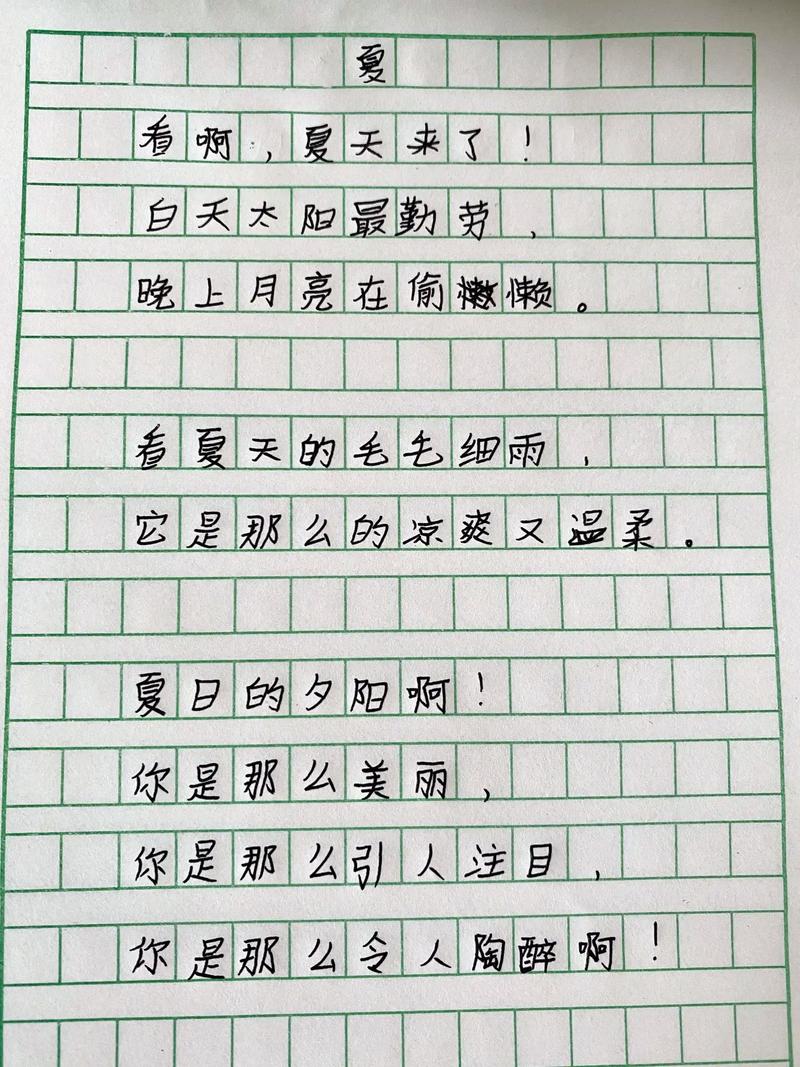 夏
看啊，夏天来了！
白天太阳最勤劳，
晚上月亮在偷懒。
看夏天的毛毛细雨，
它是那么的凉爽又温柔。
夏日的夕阳啊！
你是那么美丽，
你是那么引人注目，
你是那么令人陶醉啊！